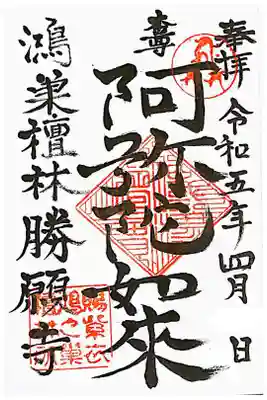 奉拝 令和五年四月 日
尊
阿弥陀如来
鴻巣檀林勝願寺